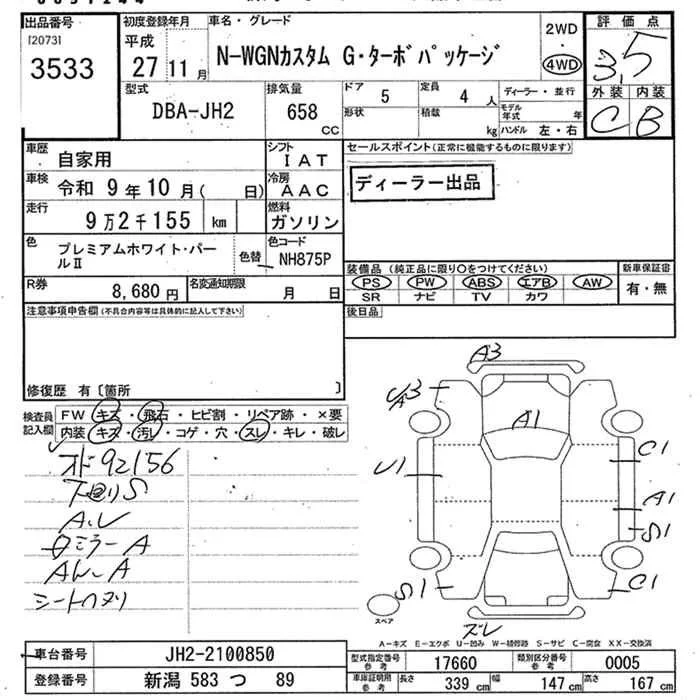 出品番号
[2073]
3533
初度登録年月
平成
27 11 月
車名・グレード
N-WGNカスタム G・ターボパッケージ
2WD
・
4WD
評価点
3.5
外装 内装
C B
型式
DBA-JH2
排気量
658
CC
ドア 5
定員 4 人
形状
積載 kg
ディーラー・並行
モデル年式 年
ハンドル 左・右
車歴 自家用
シフト IAT
車検 令和 9 年 10 月( 日)
冷房 AAC
走行 9万2千155 km
燃料 ガソリン
色 プレミアムホワイト・パールⅡ
色替
色コード NH875P
R券 8,680 円
名変通知期限 月 日
セールスポイント(正常に機能するものに限ります)
ディーラー出品
装備品 (純正品に限り○をつけてください)
PS PW ABS エアB AW
SR ナビ TV カワ
新車保証書
有・無
後日品
注意事項申告欄(不具合内容等は具体的に記入して下さい)
修復歴 有[箇所 ]
検査員記入欄
FW キズ・飛石・ヒビ割・リペア跡・×要
内装 キズ・汚レ・コゲ・穴・スレ・キレ・破レ
オド92156
下回りS
A.L
ロミラーA
シートハヌリ
A3
A1
U1
C1
A1
S1
S1
C1
ズレ
スペア
A-キズ E-エクボ U-凹み W-補修跡 S-サビ C-腐食 XX-交換済
車台番号 JH2-2100850
登録番号 新潟 583 つ 89
型式指定番号 参考 17660
類別区分番号 参考 0005
車庫証明用 参考 長さ 339 cm 幅 147 cm 高さ 167 cm